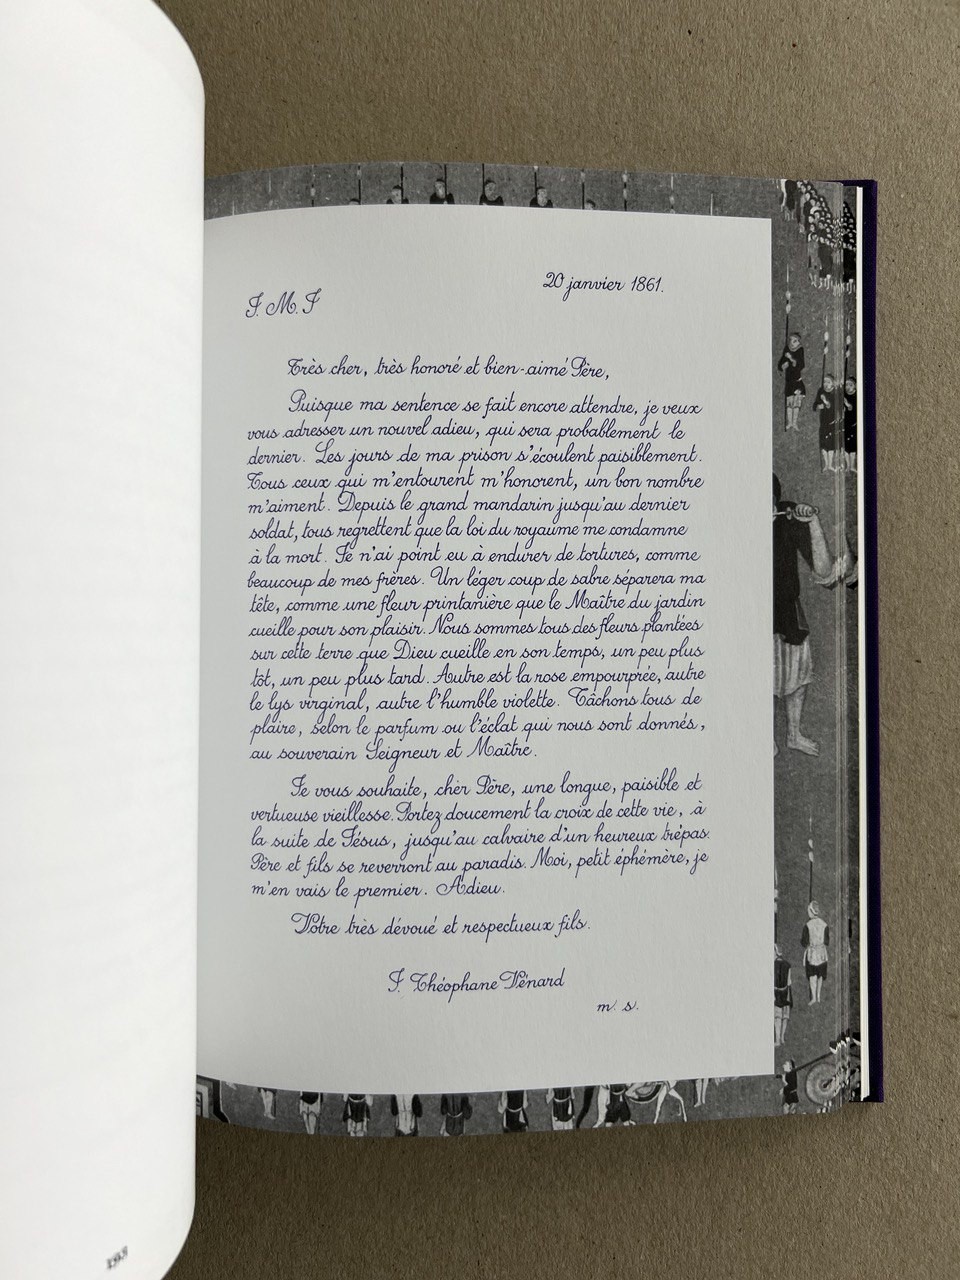 20 janvier 1861.
J. M. J
Très cher, très honoré et bien-aimé Père,
Puisque ma sentence se fait encore attendre, je veux
vous adresser un nouvel adieu, qui sera probablement le
dernier. Les jours de ma prison s'écoulent paisiblement.
Tous ceux qui m'entourent m'honorent, un bon nombre
m'aiment. Depuis le grand mandarin jusqu'au dernier
soldat, tous regrettent que la loi du royaume me condamne
à la mort. Je n'ai point eu à endurer de tortures, comme
beaucoup de mes frères. Un léger coup de sabre séparera ma
tête, comme une fleur printanière que le Maître du jardin
cueille pour son plaisir. Nous sommes tous des fleurs plantées
sur cette terre que Dieu cueille en son temps, un peu plus
tôt, un peu plus tard. Autre est la rose empourprée, autre
le lys virginal, autre l'humble violette. Tâchons tous de
plaire, selon le parfum ou l'éclat qui nous sont donnés,
au souverain Seigneur et Maître.
Je vous souhaite, cher Père, une longue, paisible et
vertueuse vieillesse. Portez doucement la croix de cette vie, à
la suite de Jésus, jusqu'au calvaire d'un heureux trépas.
Père et fils se reverront au paradis. Moi, petit éphémère, je
m'en vais le premier. Adieu.
Votre très dévoué et respectueux fils.
J. Théophane Vénard
m. s.